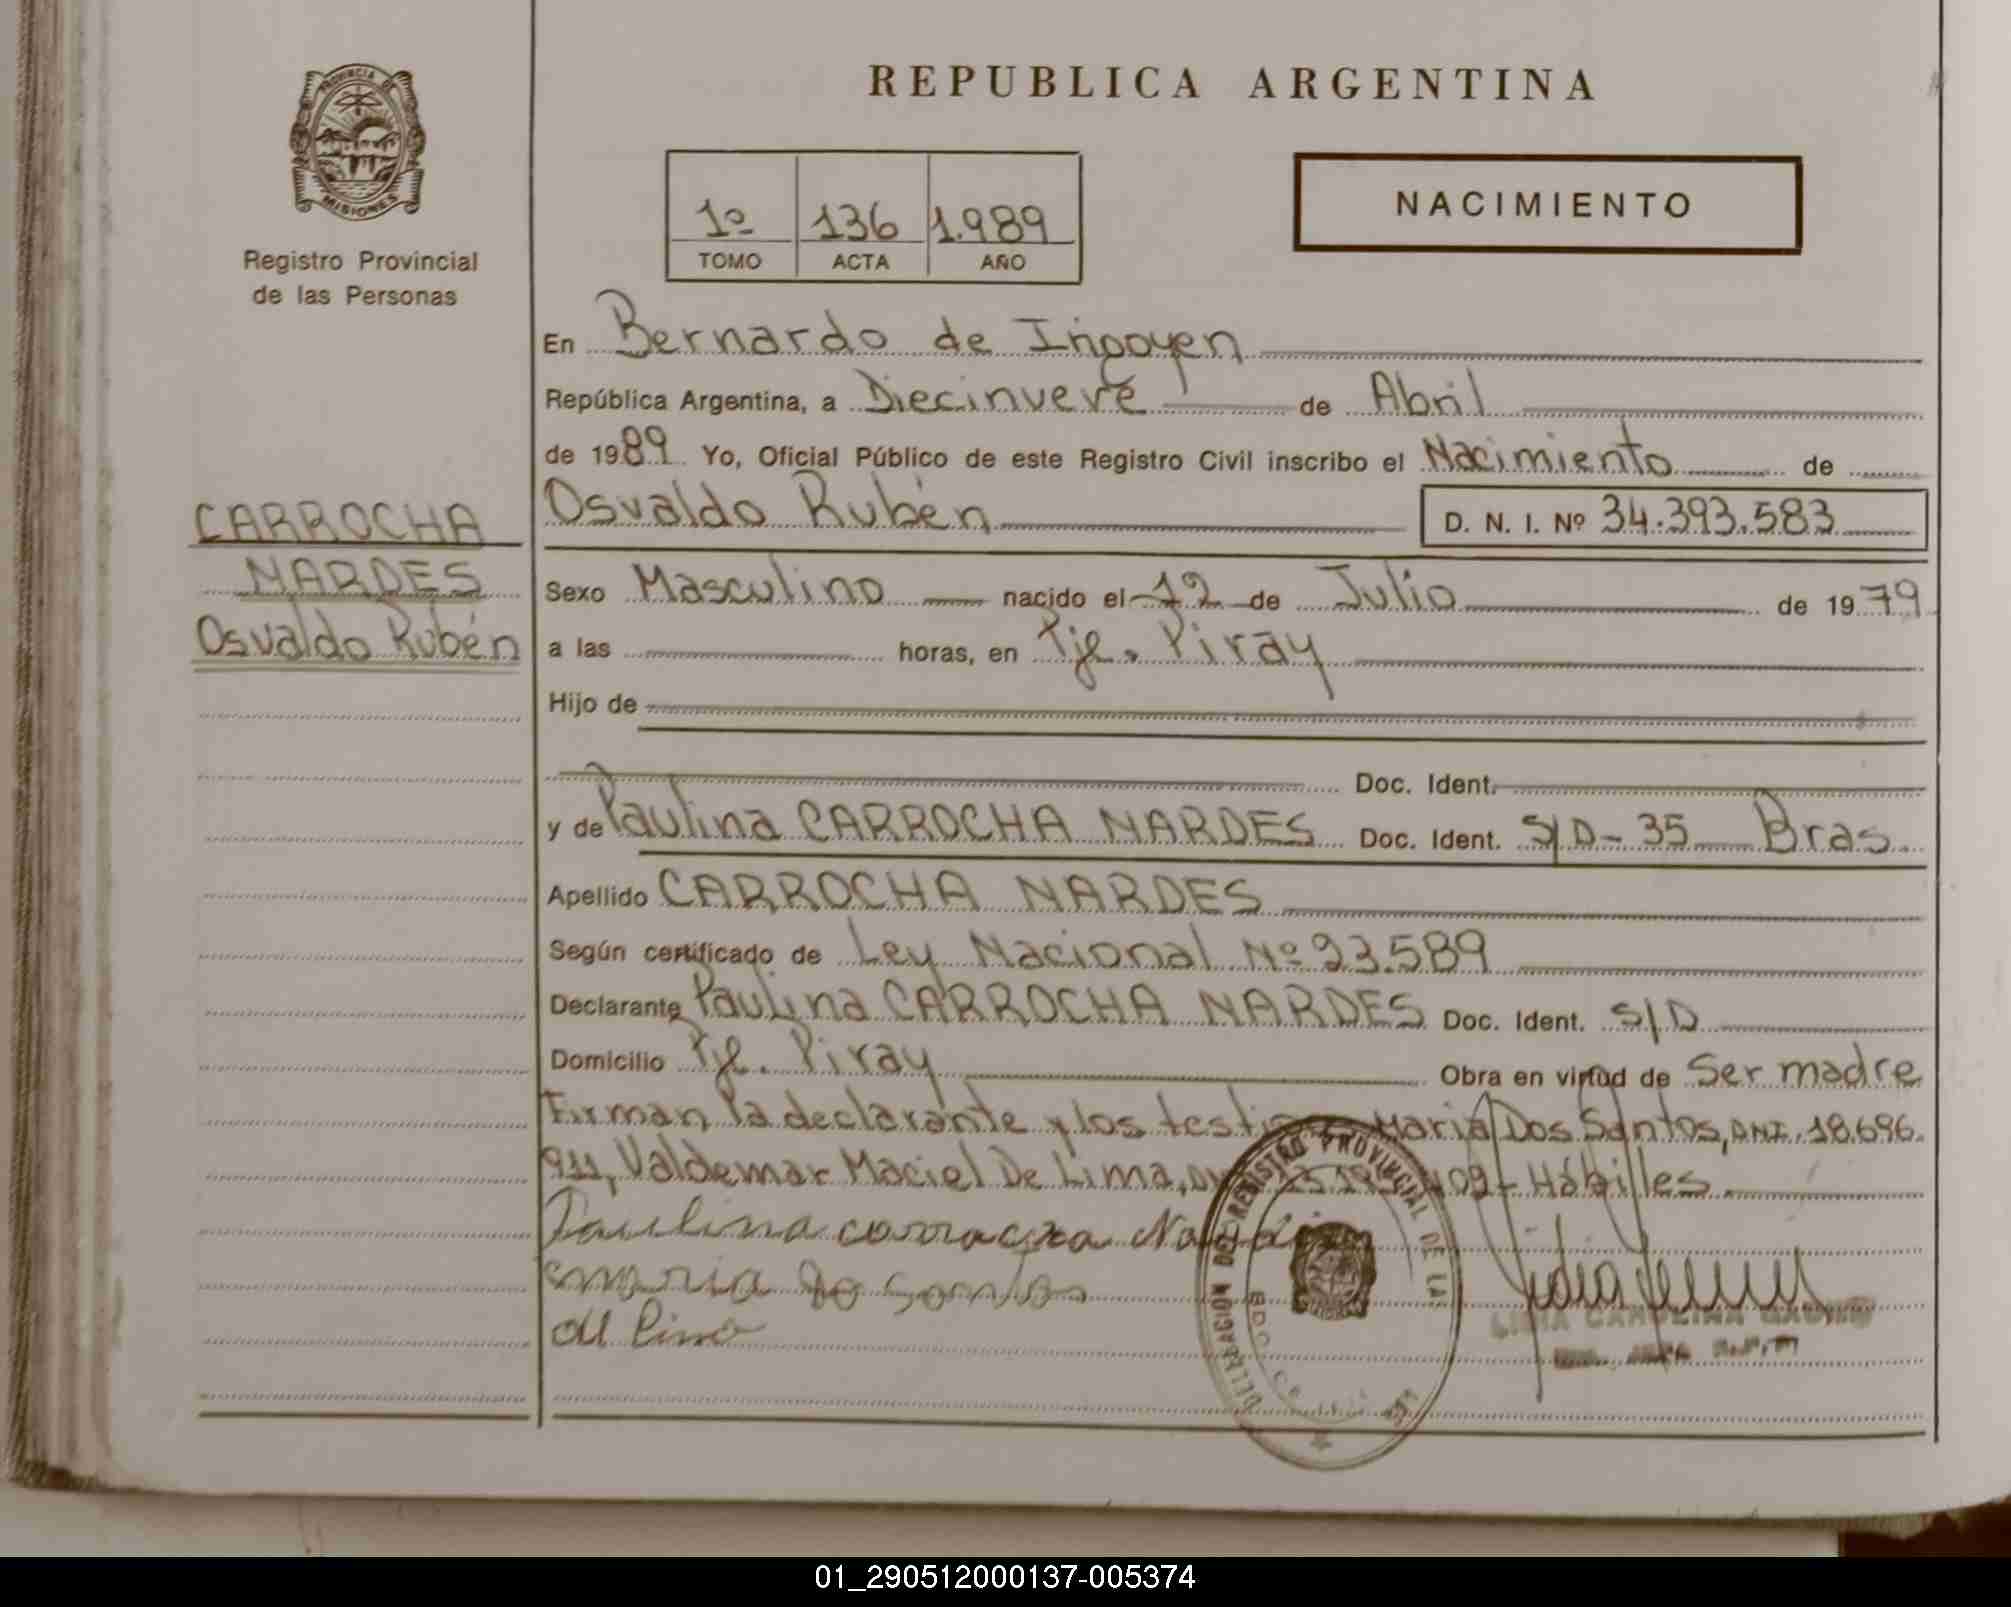 REPUBLICA ARGENTINA
PROVINCIA DE
MISIONES
Registro Provincial
de las Personas
1º 136 1.989
TOMO ACTA AÑO
NACIMIENTO
En Bernardo de Irigoyen
República Argentina, a Diecinueve de Abril
de 1989 Yo, Oficial Público de este Registro Civil inscribo el Nacimiento de
Osvaldo Rubén D. N. I. Nº 34.393.583
CARROCHA
NARDES
Osvaldo Rubén
Sexo Masculino nacido el 12 de Julio de 1979
a las horas, en Pje. Piray
Hijo de
Doc. Ident.
y de Paulina CARROCHA NARDES Doc. Ident. S/D - 35 Bras.
Apellido CARROCHA NARDES
Según certificado de Ley Nacional Nº 23.589
Declarante Paulina CARROCHA NARDES Doc. Ident. S/D
Domicilio Pje. Piray Obra en virtud de Ser madre
Firman la declarante y los Maria Dos Santos, DNI. 18.696.
911, Valdemar Maciel De Lima, 409 - Hábiles
Paulina
DELEGACION DEL REGISTRO PROVINCIAL DE LAS
maria do santos
de lima
LIDIA CAROLINA
01_290512000137-005374